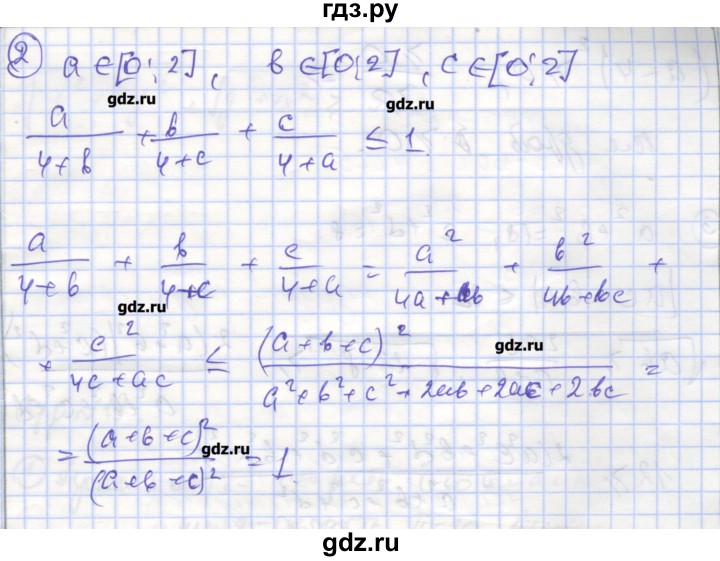 гдз.ру
② a ∈ [0; 2], b ∈ [0; 2], c ∈ [0; 2]
gdz.ru
gdz.ru
a/(4+b) + b/(4+c) + c/(4+a) ≤ 1.
a/(4+b) + b/(4+c) + c/(4+a) = a²/(4a+ab) + b²/(4b+bc) +
gdz.ru
+ c²/(4c+ac) ≤ (a+b+c)²/(a²+b²+c²+2ab+2ac+2bc) =
gdz.ru
= (a+b+c)²/(a+b+c)² = 1.
gdz.ru
gdz.ru